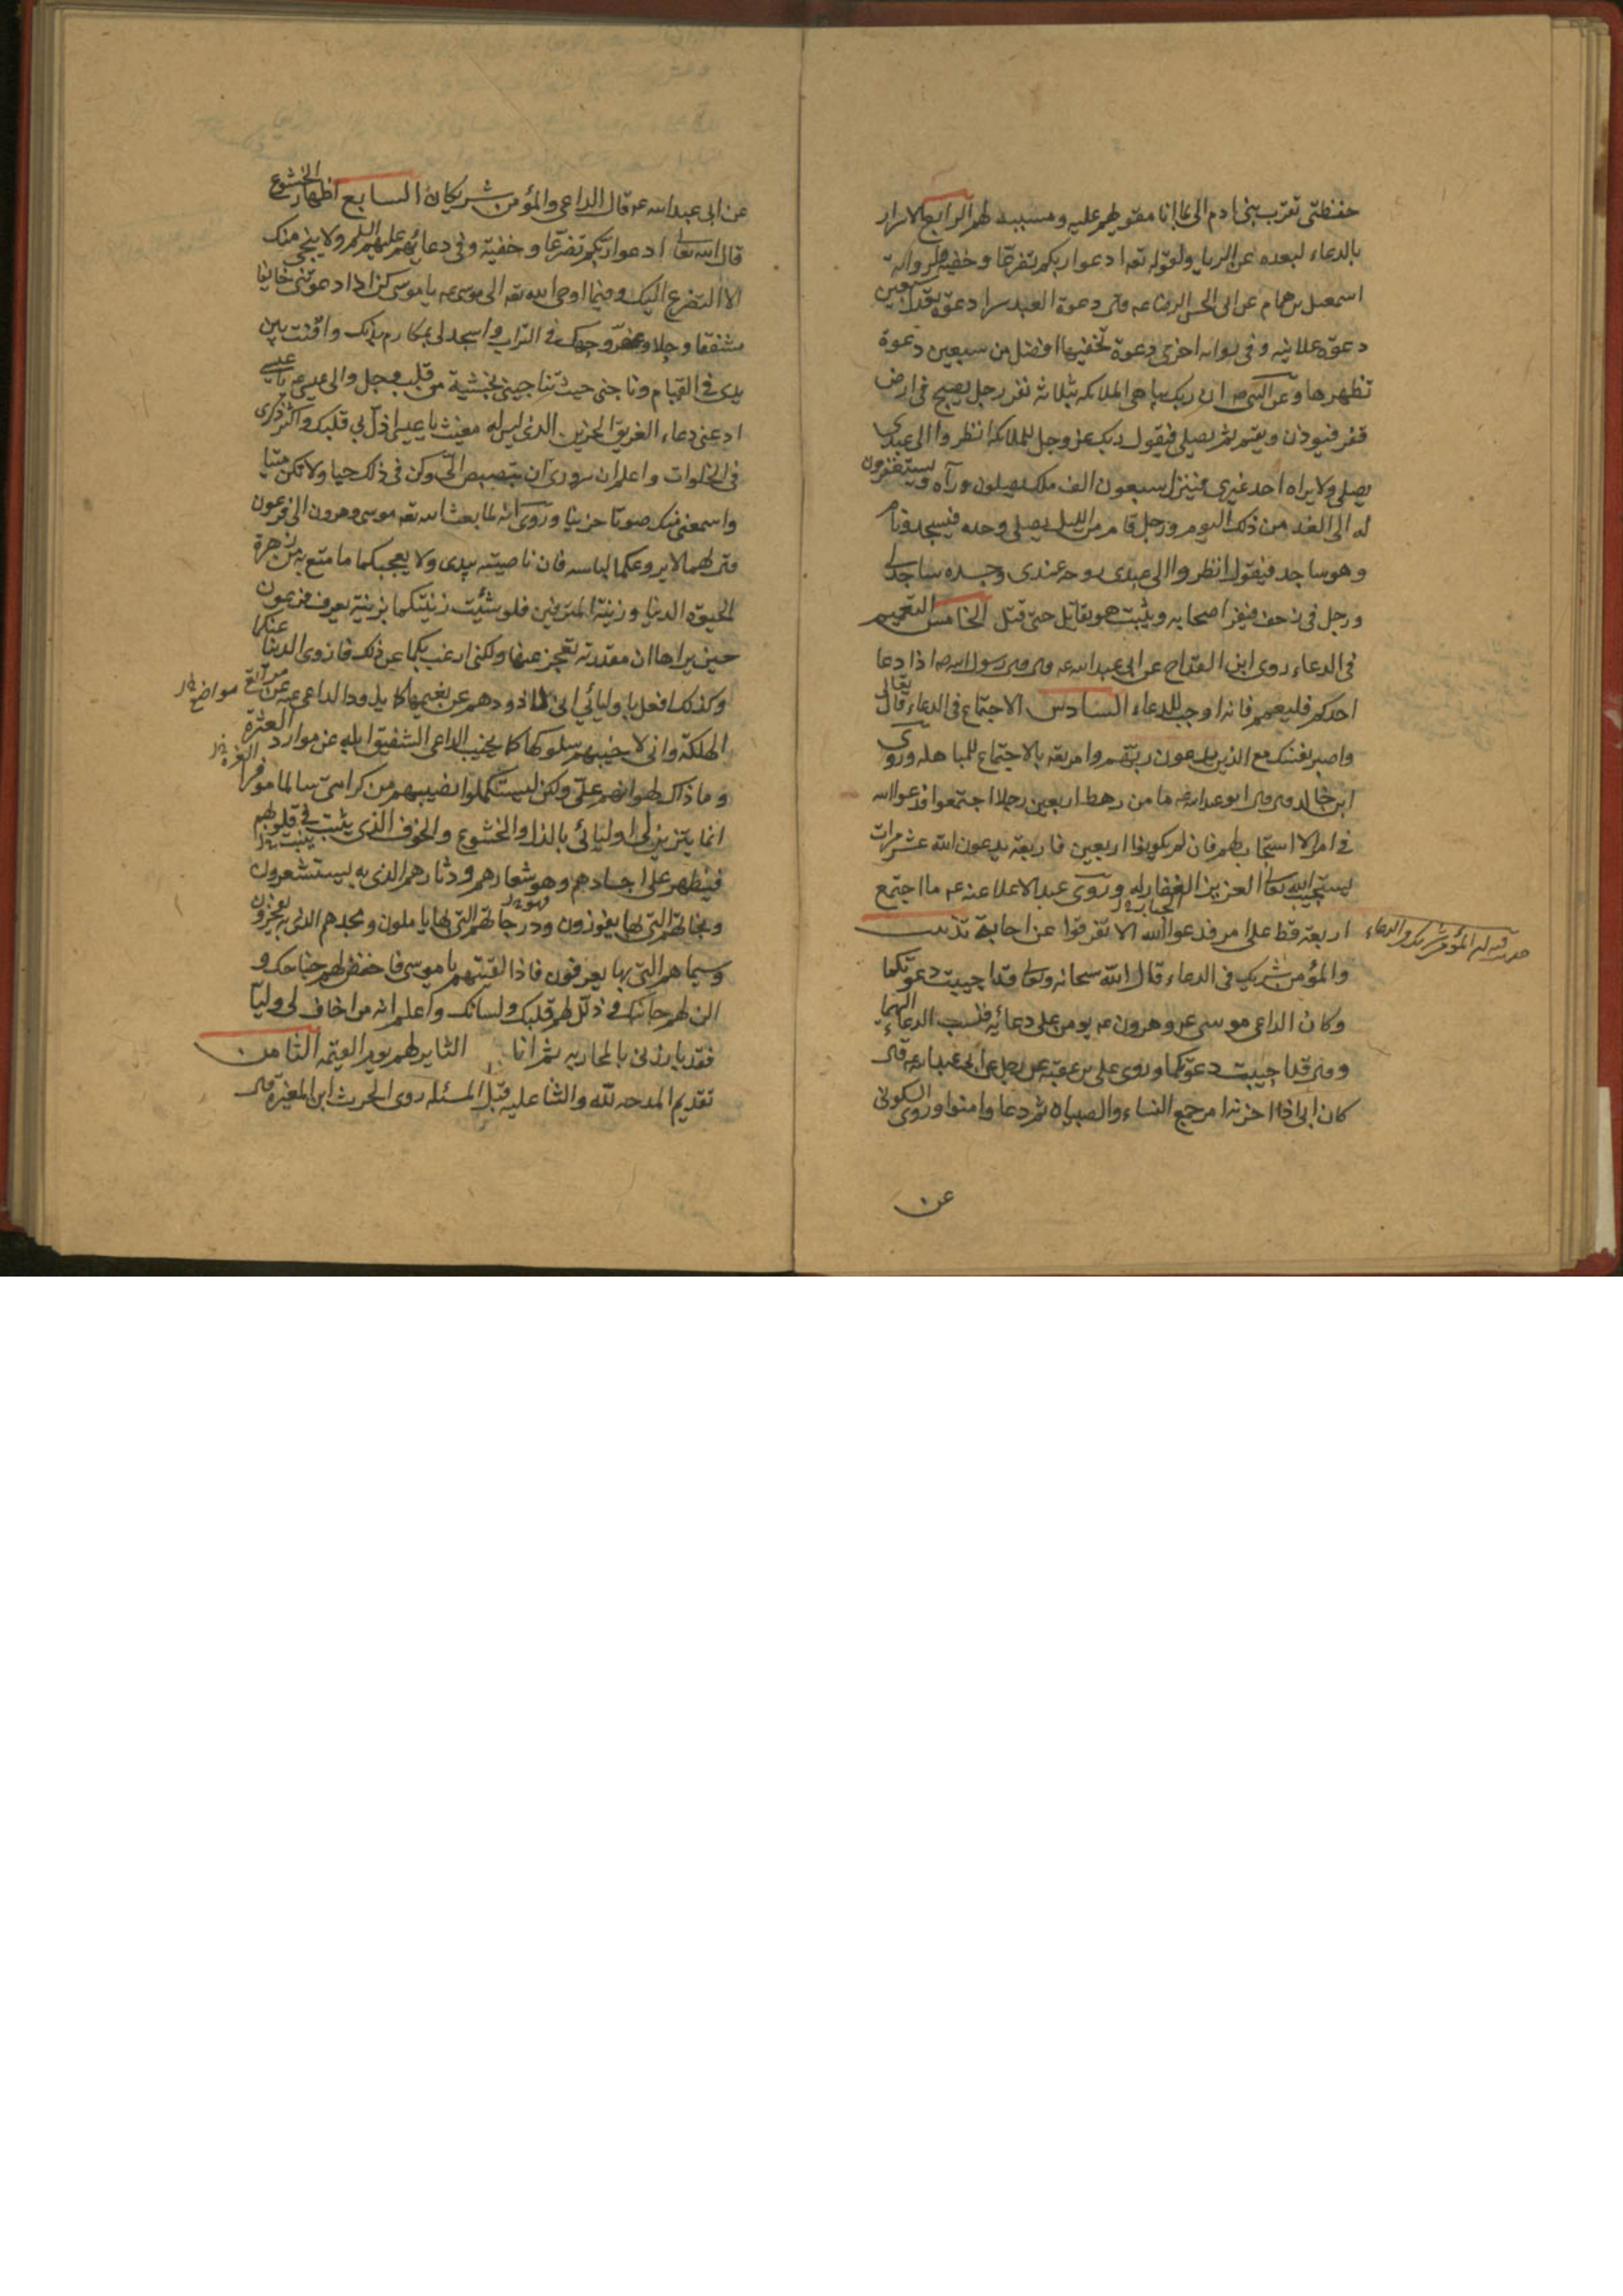 حفظتی تقرب بنی ادم الی عالما انا مقویهم علیه ومسببه لهم الرابع الاسرار
بالدعاء لبعده عن الریا ولقوله تعه ادعوا ربکم تضرعا وخفیة ولروایة
اسمعیل بن همام عن ابی الحسن الرضا عه قال دعوة العبد سرا دعوة تعدل سبعین
دعوة علانیه وفی روایه اخری دعوة تخفیها افضل من سبعین دعوة
تظهرها وعن النبی صه ان ربک یباهی الملائکه بثلاثه نفر رجل یصبح فی ارض
قفر فیوذن ویقیم ثم یصلی فیقول ربک عز وجل للملائکه انظروا الی عبدی
یصلی ولا یراه احد غیری فینزل سبعون الف ملک یصلون ورآه ویستغفرون
له الی الغد من ذلک الیوم ورجل قام من اللیل یصلی وحده فیسجد ونام
وهو ساجد فیقول انظروا الی عبدی روحه عندی وجسده ساجد لی
ورجل فی زحف فیفر اصحابه ویثبت هو یقاتل حتی قتل الخامس التعمیم
فی الدعاء روی ابن القداح عن ابی عبدالله عه قال قال رسول الله صه اذا دعا
احدکم فلیعمم فانه اوجب للدعاء السادس الاجتماع فی الدعاء قال تعالی
واصبر نفسک مع الذین یدعون ربهم وامر تعه بالاجتماع للمباهله وروی
ابن خالد قال قال ابو عبدالله عه ما من رهط اربعین رجلا اجتمعوا فدعوا الله
فی امر الا استجاب لهم فان لم یکونوا اربعین فاربعة یدعون الله عشر مرات
یستجیب الله تعالی العزیز الغفار له وروی عبد الاعلا عنه عه ما اجتمع
الجبار خ ل
اربعة قط علی امر فدعوا الله الا تفرقوا عن اجابة تذنیب
المؤمن شریک فی الدعاء
والمؤمن شریک فی الدعاء قال الله سبحانه وتعالی قد اجیبت دعوتکما
وکان الداعی موسی عه وهرون عه یومن علی دعائه فنسب الدعاء الیهما
وقال قد اجیبت دعوتکما وروی علی بن عقبه عن رجل عن ابی عبدالله عه قال
کان ابی اذا احزنه امر جمع النساء والصبیان ثم دعا وامنوا وروی السکونی
عن
عن ابی عبد الله عه قال الداعی والمؤمن شریکان السابع اظهار الخشوع
قال الله تعالی ادعوا ربکم تضرعا وخفیة وفی دعائهم علیهم السلم ولا ینجی منک
الا التضرع الیک وفیما اوحی الله تعه الی موسی عه یا موسی کن اذا دعوتنی خائفا
مشفقا وجلا وعفر وجهک فی التراب واسجد لی بمکارم بدنک واقنت بین
یدی فی القیام وناجنی حیث تناجینی بخشیة من قلب وجل والی عیسی عه یا عیسی
ادعنی دعاء الغریق الحزین الذی لیس له مغیث یا عیسی اذل لی قلبک واکثر ذکری
فی الخلوات واعلم ان سروری ان تبصبص الی وکن فی ذلک حیا ولا تکن میتا
واسمعنی منک صوتا حزینا وروی انه لما بعث الله تعه موسی وهرون الی فرعون
قال لهما لا یروعکما لباسه فان ناصیته بیدی ولا یعجبکما ما متع به من زهرة
الحیوة الدنیا وزینة المترفین فلو شئت زینتکما بزینة یعرف فرعون
حین یراها ان مقدرته تعجز عنها ولکنی ارغب بکما عن ذلک فازوی الدنیا عنکما
وکذلک افعل باولیائی انی لاذودهم عن نعیمها کما یذود الداعی غنمه عن مراتع
مواضع خ ل
الهلکة وانی لاجنبهم سلوکها کما یجنب الراعی الشفیق ابله عن موارد العثرة
الغرة خ ل
وما ذاک لهوانهم علی ولکن لیستکملوا نصیبهم من کرامتی سالما موفرا
انما یتزین لی اولیائی بالذل والخشوع والخوف الذی یثبت فی قلوبهم
ینبت خ ل
فیظهر علی اجسادهم وهو شعارهم ودثارهم الذی به یستشعرون
ونجاتهم التی بها یفوزون ودرجاتهم التی لها یاملون ومجدهم الذی به یفخرون
وسیماهم التی بها یعرفون فاذا لقیتهم یا موسی فاخفض لهم جناحک و
الن لهم جانبک وذلل لهم قلبک ولسانک واعلم انه من اخاف لی ولیا
فقد بارزنی بالمحاربه ثم انا الثایر لهم یوم القیمه الثامن
تقدیم المدحه لله والثنا علیه قبل المسئله روی الحرث ابن المغیرة قال